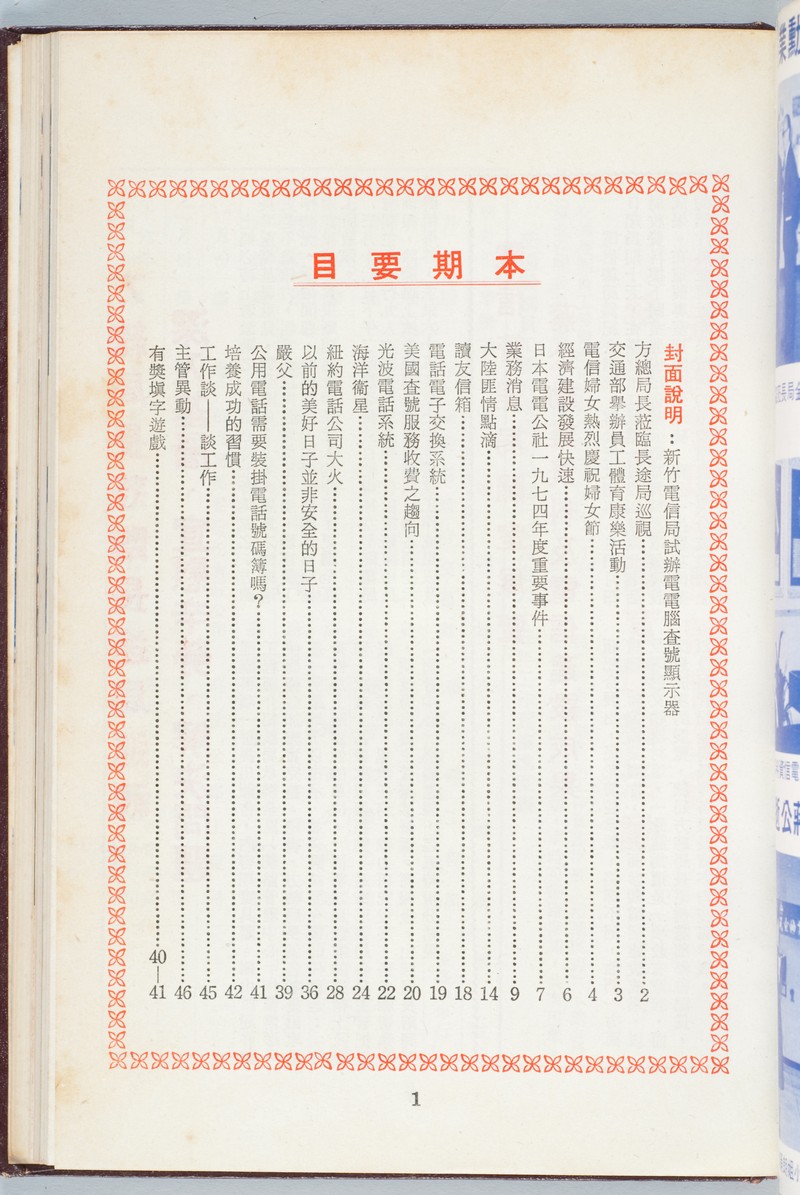 本期要目
封面說明：新竹電信局試辦電電腦查號顯示器
方總局長蒞臨長途局巡視……2
交通部舉辦員工體育康樂活動……3
電信婦女熱烈慶祝婦女節……4
經濟建設發展快速……6
日本電電公社一九七四年度重要事件……7
業務消息……9
大陸匪情點滴……14
讀友信箱……18
電話電子交換系統……19
美國查號服務收費之趨向……20
光波電話系統……22
海洋衞星……24
紐約電話公司大火……28
以前的美好日子並非安全的日子……36
嚴父……39
公用電話需要裝掛電話號碼簿嗎？……41
培養成功的習慣……42
工作談——談工作……45
主管異動……46
有獎塡字遊戲……40—41
1